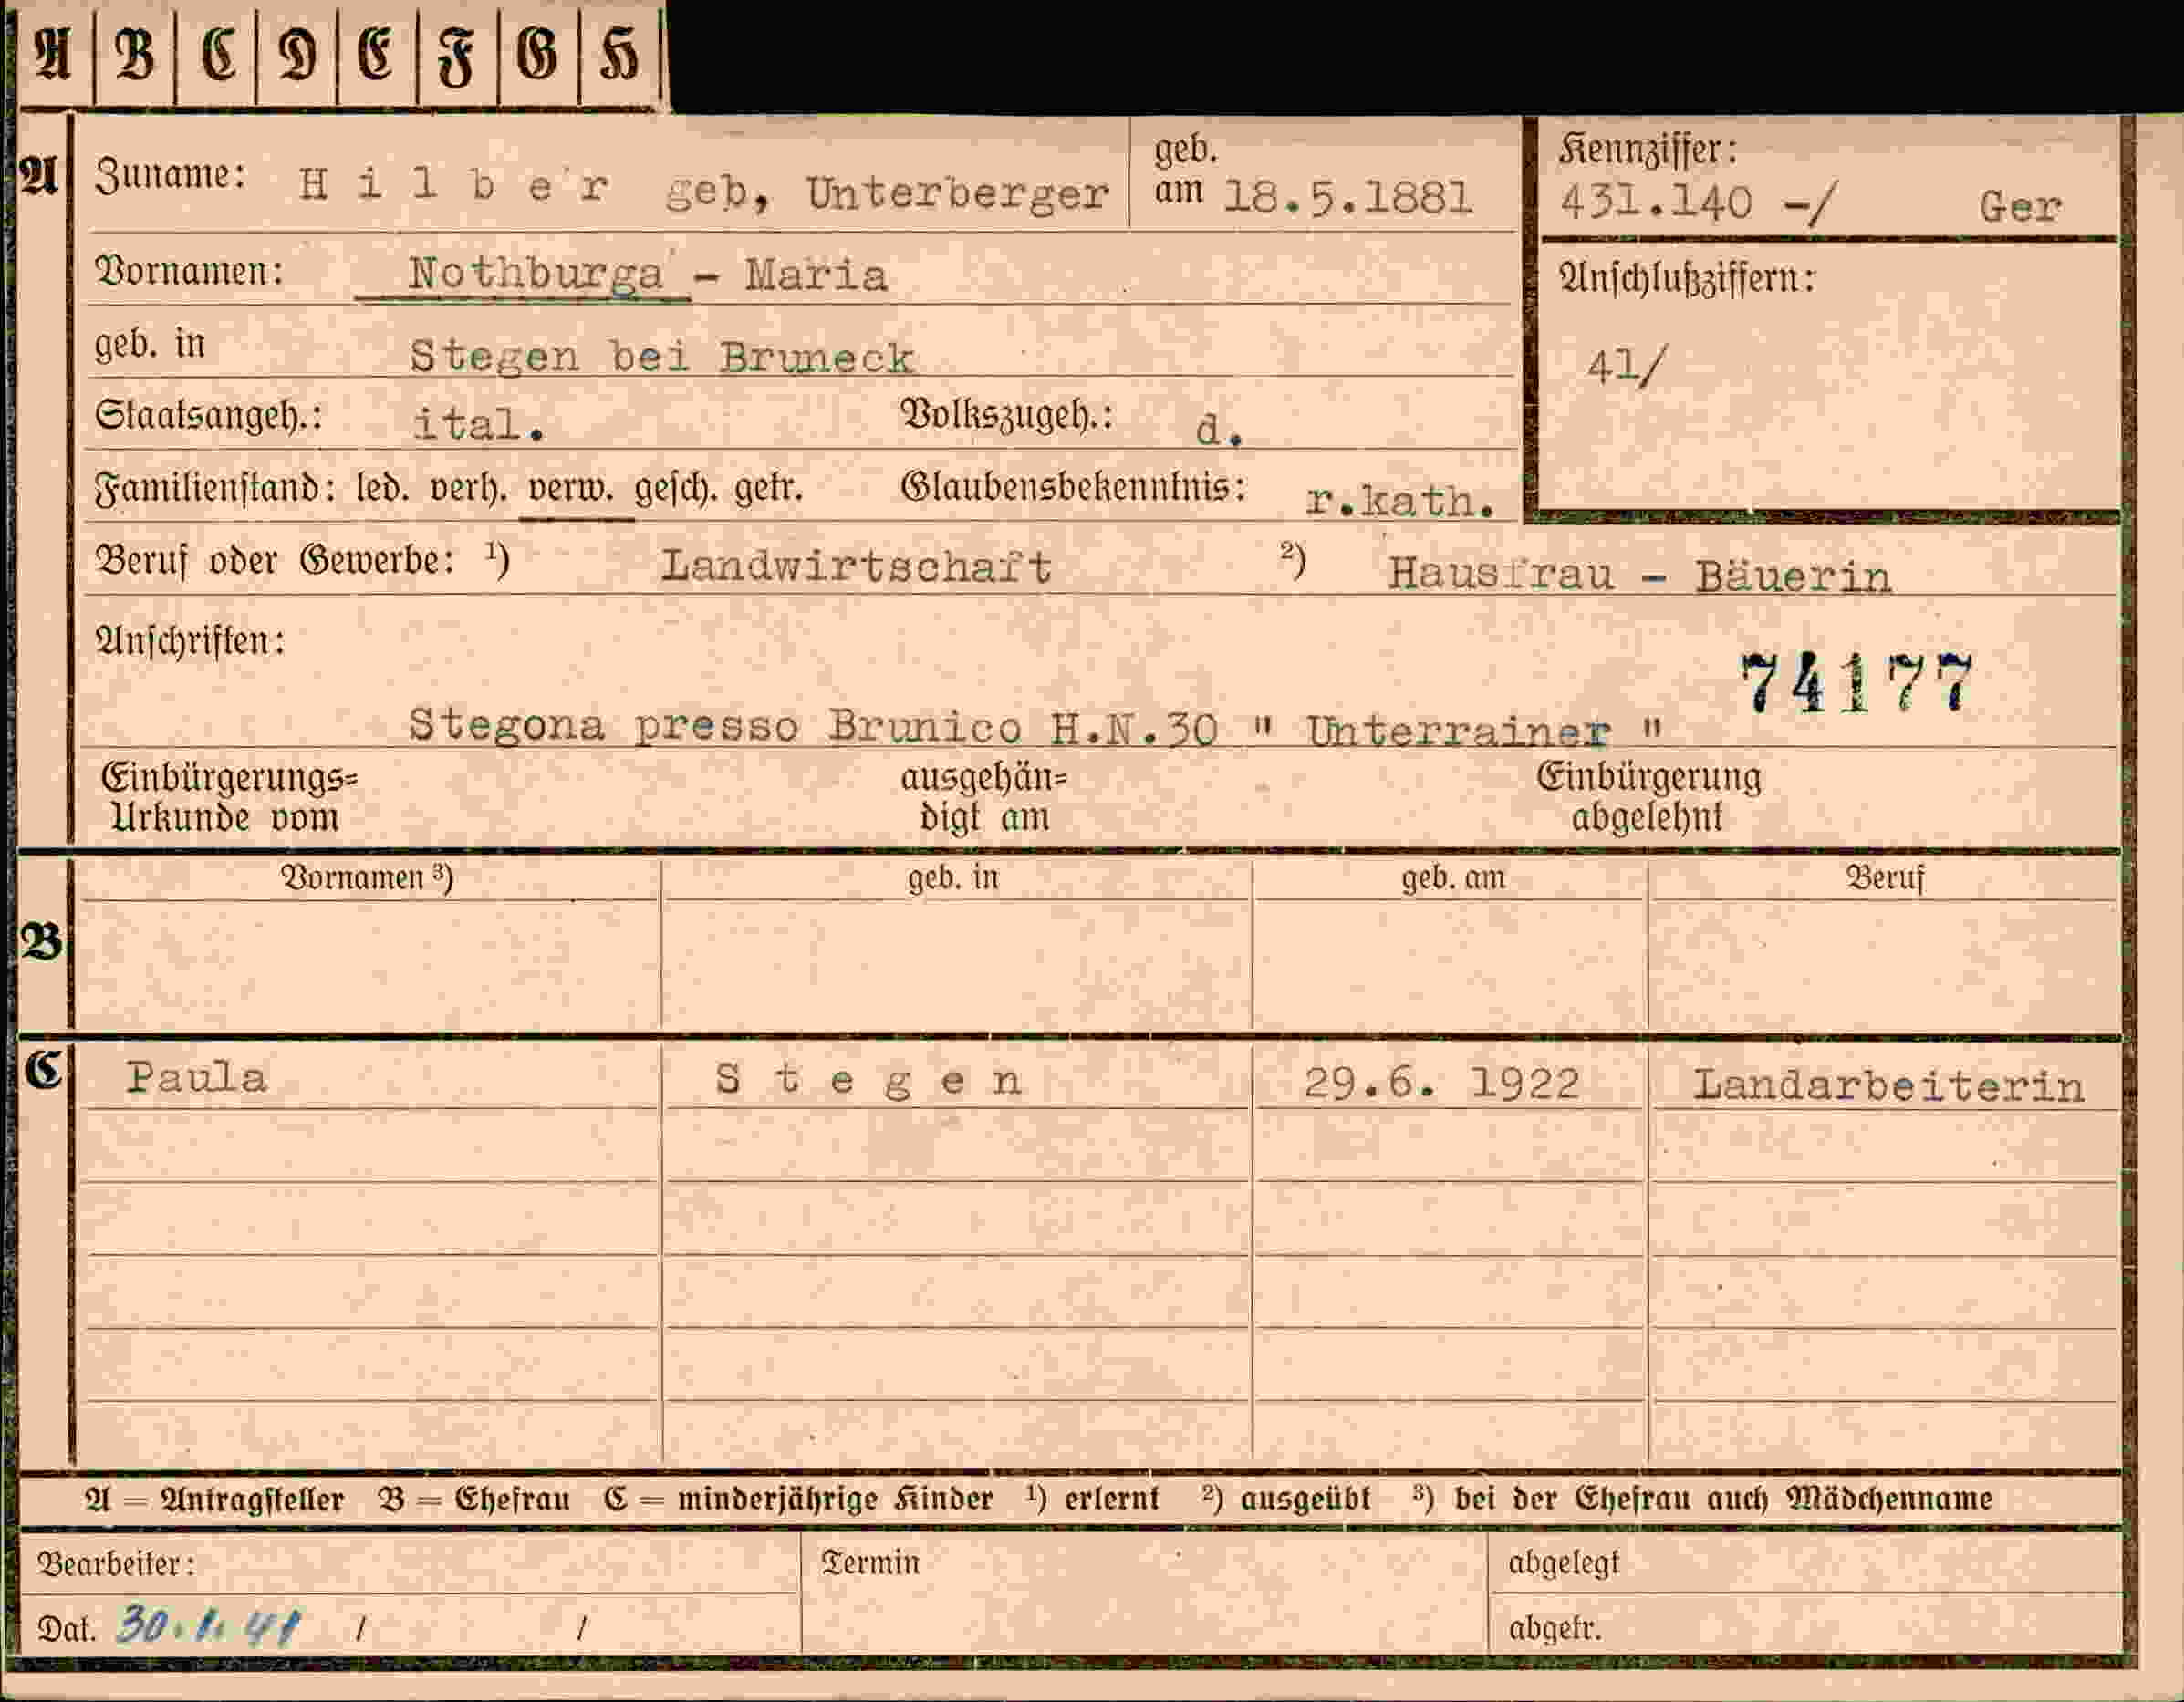 A B C D E F G H
A Zuname: Hilber geb, Unterberger geb. am 18.5.1881 Kennziffer: 431.140 -/ Ger
Vornamen: Nothburga - Maria
Anschlußziffern:
geb. in Stegen bei Bruneck
41/
Staatsangeh.: ital. Volkszugeh.: d.
Familienstand: led. verh. verw. gesch. getr. Glaubensbekenntnis: r.kath.
Beruf oder Gewerbe: 1) Landwirtschaft 2) Hausfrau - Bäuerin
Anschriften:
74177
Stegona presso Brunico H.N.30 " Unterrainer "
Einbürgerungs= ausgehän= Einbürgerung
Urkunde vom digt am abgelehnt
Vornamen 3) geb. in geb. am Beruf
B
C Paula Stegen 29.6. 1922 Landarbeiterin
A = Antragsteller B = Ehefrau C = minderjährige Kinder 1) erlernt 2) ausgeübt 3) bei der Ehefrau auch Mädchenname
Bearbeiter: Termin abgelegt
Dat. 30.1.41 / / abgetr.